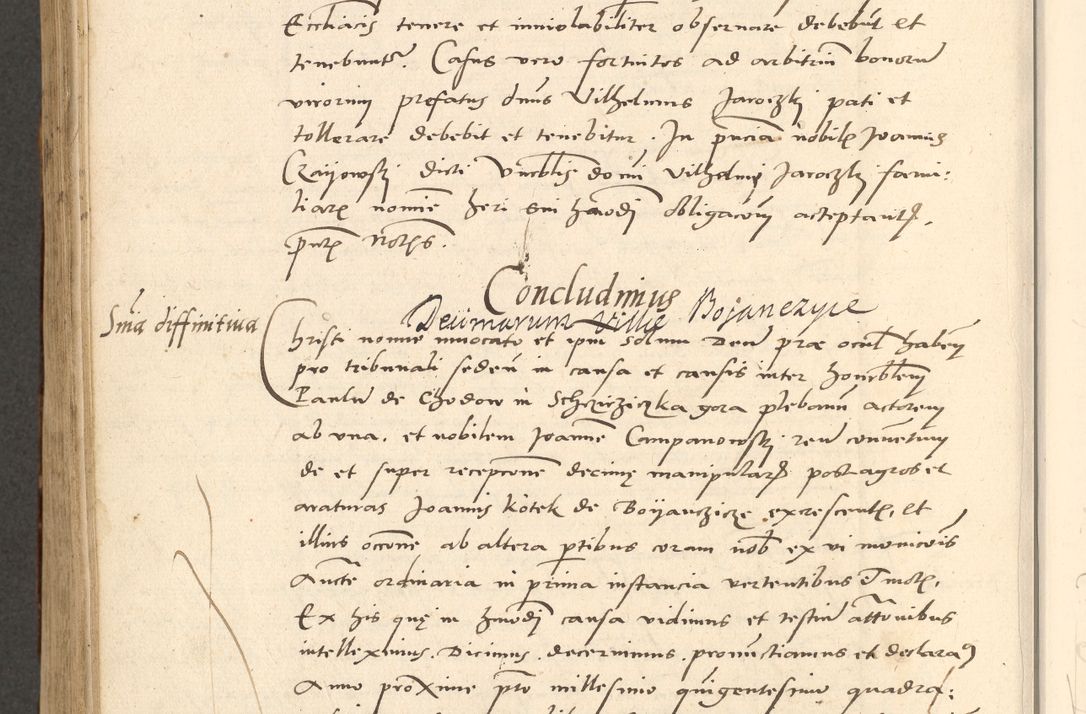 Eccliacis tenere et inviolabiliter observare debebut et
tenebuntr. Casus vero fortuitos ad arbitriu bonoru
virorum prefatus dnus Vilhelmus Jaroczki pati et
tollerare debebit et tenebitur. In pncia nobil Joannis
Crayowski dicti Vnerblis domi Vilhelmi Jaroczki fami:
liare nomie
obligacom acceptant.
pnt Notis.
Concludimus
Decimarum Villę Bojanczyce
Snia diffinitiua
Christi nomine invocato et ipm solum Deu præ ocul haben
pro tribunali seden in causa et causis inter honorblem
Paulu de Chodow in Schcziczka gora plebanu actorem
ab vna. et nobilem Joanne Campanowski reu conuentum
de et super recepcone decimę manipular post agros et
araturas Joannis Kotek de Boyanczicze excrescent, et
illius occone ab altera ptibus coram nob ex vi
Aucte ordinaria in prima instancia vertentibus
Ex his quę in hmodi causa vidimus et testiu
intelleximus. Dicimus. decernimus. pronuctiamus et declaram
Anno proxime pto millesimo quigentesimo quadra: